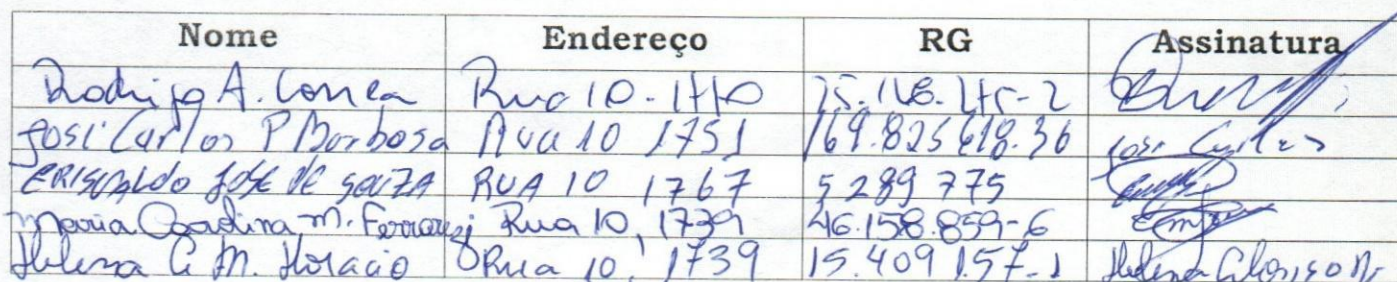 Nome Endereço RG Assinatura
Rodrigo A. Correa Rua 10 - 1710
José Carlos P Barbosa Rua 10 1751 169.825.618.36 José Carlos
ERISVALDO JOSE DE SOUZA RUA 10 1767 5 289 775
Maria Carolina M. Ferrarezi Rua 10, 1739 46.158.859-6
Helena C M. Horacio Rua 10, 1739 15.409 157-1 Helena